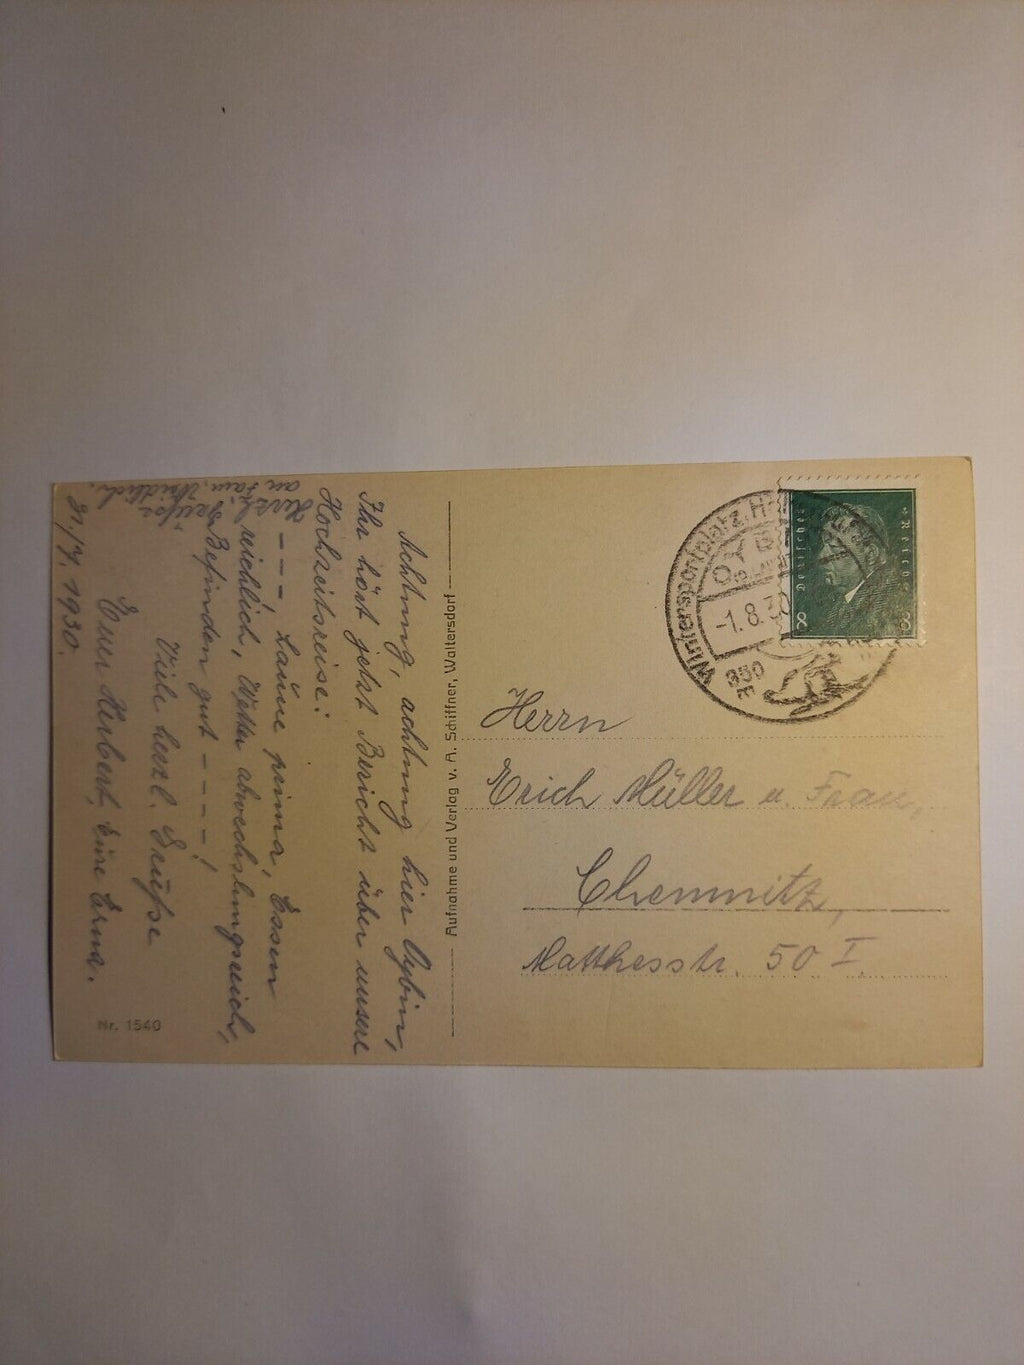 Achtung, achtung hier Oybin,
Ihr hört jetzt Bericht über unsere
Hochzeitsreise:
– – – Laune prima, Essen
reichlich, Wetter abwechslungsreich,
Befinden gut – – – !
Viele herzl. Grüsse
Euer Herbert, Eure Erna.
31./7. 1930.
Herzl. Grüsse
an Fam. Weidlich.
Nr. 1540
Aufnahme und Verlag v. A. Schiffner, Waltersdorf
Wintersportplatz,
OYBIN
-1.8.30
850
F
Deutsches Reich
8 8
Herrn
Erich Müller u. Frau,
Chemnitz,
Matthesstr. 50 I